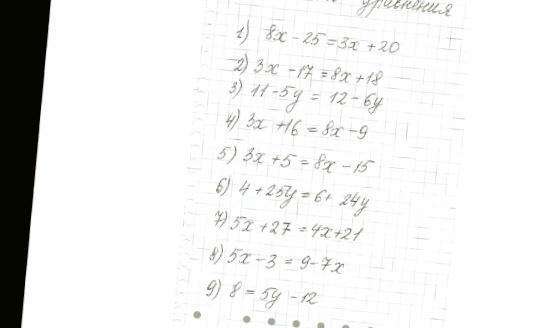 уравнения
1) 8x - 25 = 3x + 20
2) 3x - 17 = 8x + 18
3) 11 - 5y = 12 - 6y
4) 3x + 16 = 8x - 9
5) 3x + 5 = 8x - 15
6) 4 + 25y = 6 + 24y
7) 5x + 27 = 4x + 21
8) 5x - 3 = 9 - 7x
9) 8 = 5y - 12